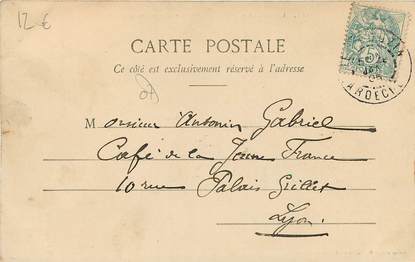 12 €
CARTE POSTALE
Ce côté est exclusivement réservé à l'adresse
Monsieur Antonin Gabriel
Café de la Jeune France
10 rue Palais Grillet
Lyon.
5
ARDÈCHE